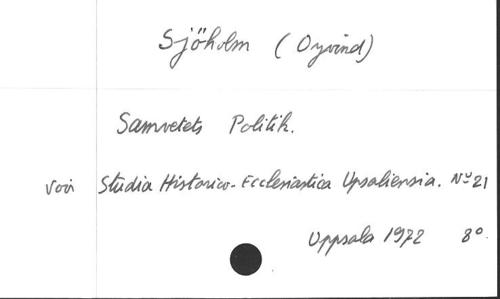 Sjöholm (Oyvind)
Samvetets Politik.
Voir Studia Historico-Ecclesiastica Upsaliensia. No 21
Uppsala 1972 8°.